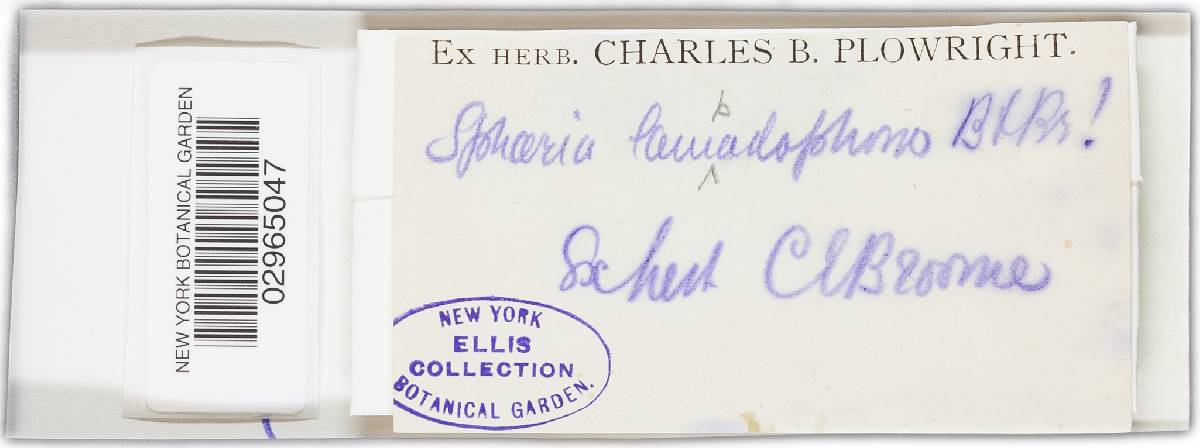 Ex HERB. CHARLES B. PLOWRIGHT.
Sphaeria lampadophora B & Br!
Ex herb C E Broome
NEW YORK
ELLIS
COLLECTION
BOTANICAL GARDEN.
NEW YORK BOTANICAL GARDEN
02965047